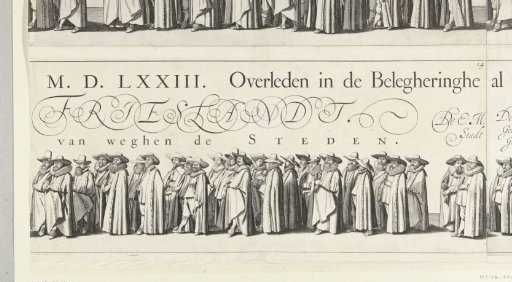 14
M. D. LXXIII. Overleden in de Belegheringhe al
FRIESLANDT.
van weghen de STEDEN.
Stadt